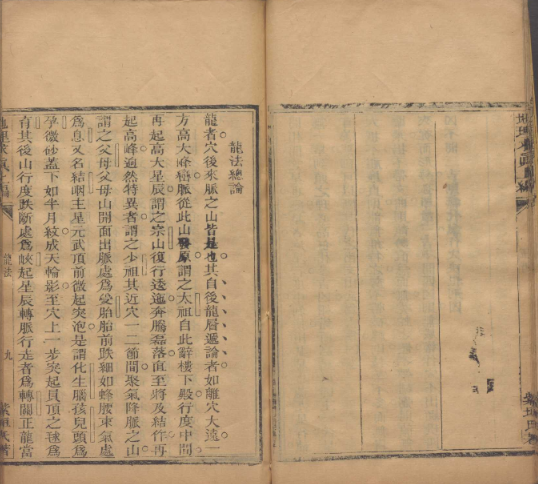 龍法總論
龍者穴後來脈之山皆是也其自後龍層遞論者如離穴大遠一
方高大峰巒脈從此山發原謂之太祖自此辭樓下殿行度中間
再起高大星辰謂之宗山復行逶迤奔騰磊落直至將及結作再
起高峰逈然特異者謂之少祖其近穴一二節間聚氣降脈之山
謂之父母父母山開面出脈處爲受胎胎前跌細如蜂腰束氣處
爲息又名結咽主星元武頂前微起突泡是謂化生腦孩兒頭爲
孕微砂蓋下如半月紋成天輪影至穴上一步突起員頂之毬爲
育其後山行度跌斷處爲峽起星辰轉脈行走者爲轉關正龍當
龍法
九